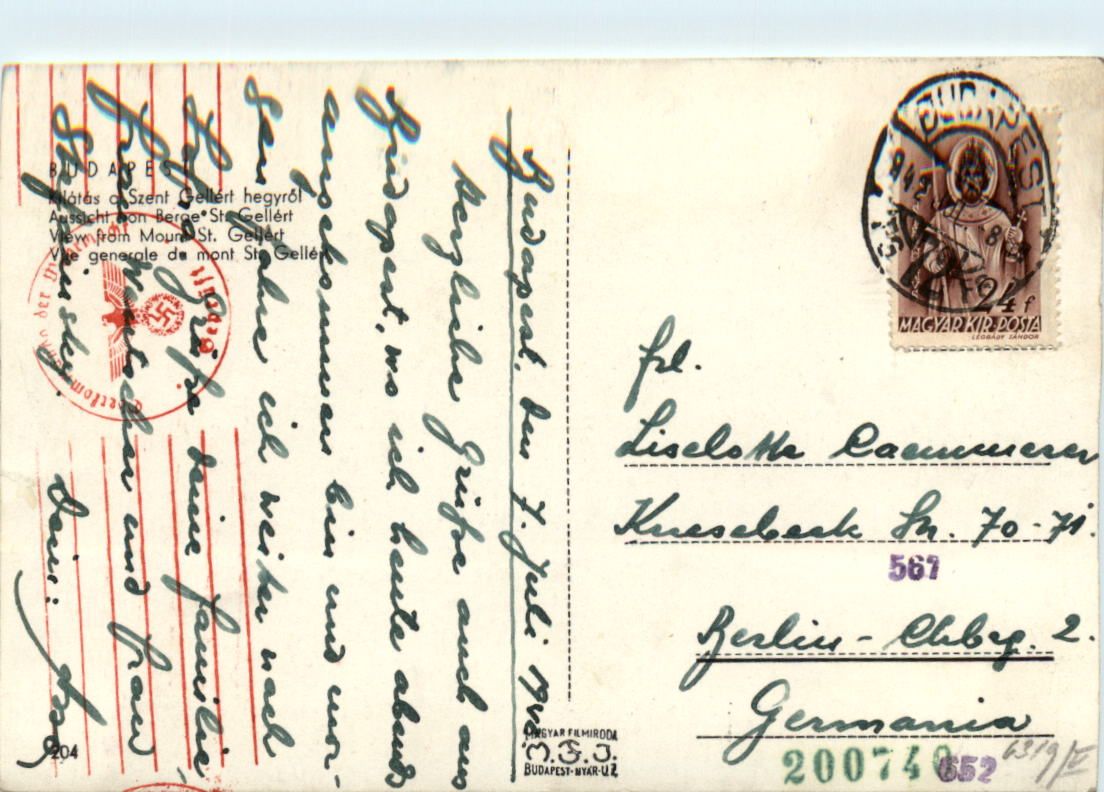 BUDAPEST
Kilátás a Szent Gellért hegyről
Aussicht von Berge St. Gellért
View from Mount St. Gellért
Vue generale du mont St. Gellért
Budapest, den 7. Juli
Herzliche Grüße auch aus
Budapest, wo ich heute abends
angekommen bin und mor-
gen fahre ich weiter nach
Grüße deine Familie
und Frau
Dein:
204
MAGYAR FILMIRODA
BUDAPEST-NYÁR-U.7.
BUDAPEST
24 f
MAGYAR KIR. POSTA
LÉGRÁDY SÁNDOR
Geprüft
Frl.
Liselotte Caemmerer
Knesebeck Str. 70-71.
567
Berlin - Chbrg. 2.
Germania
200740
652
6319/V